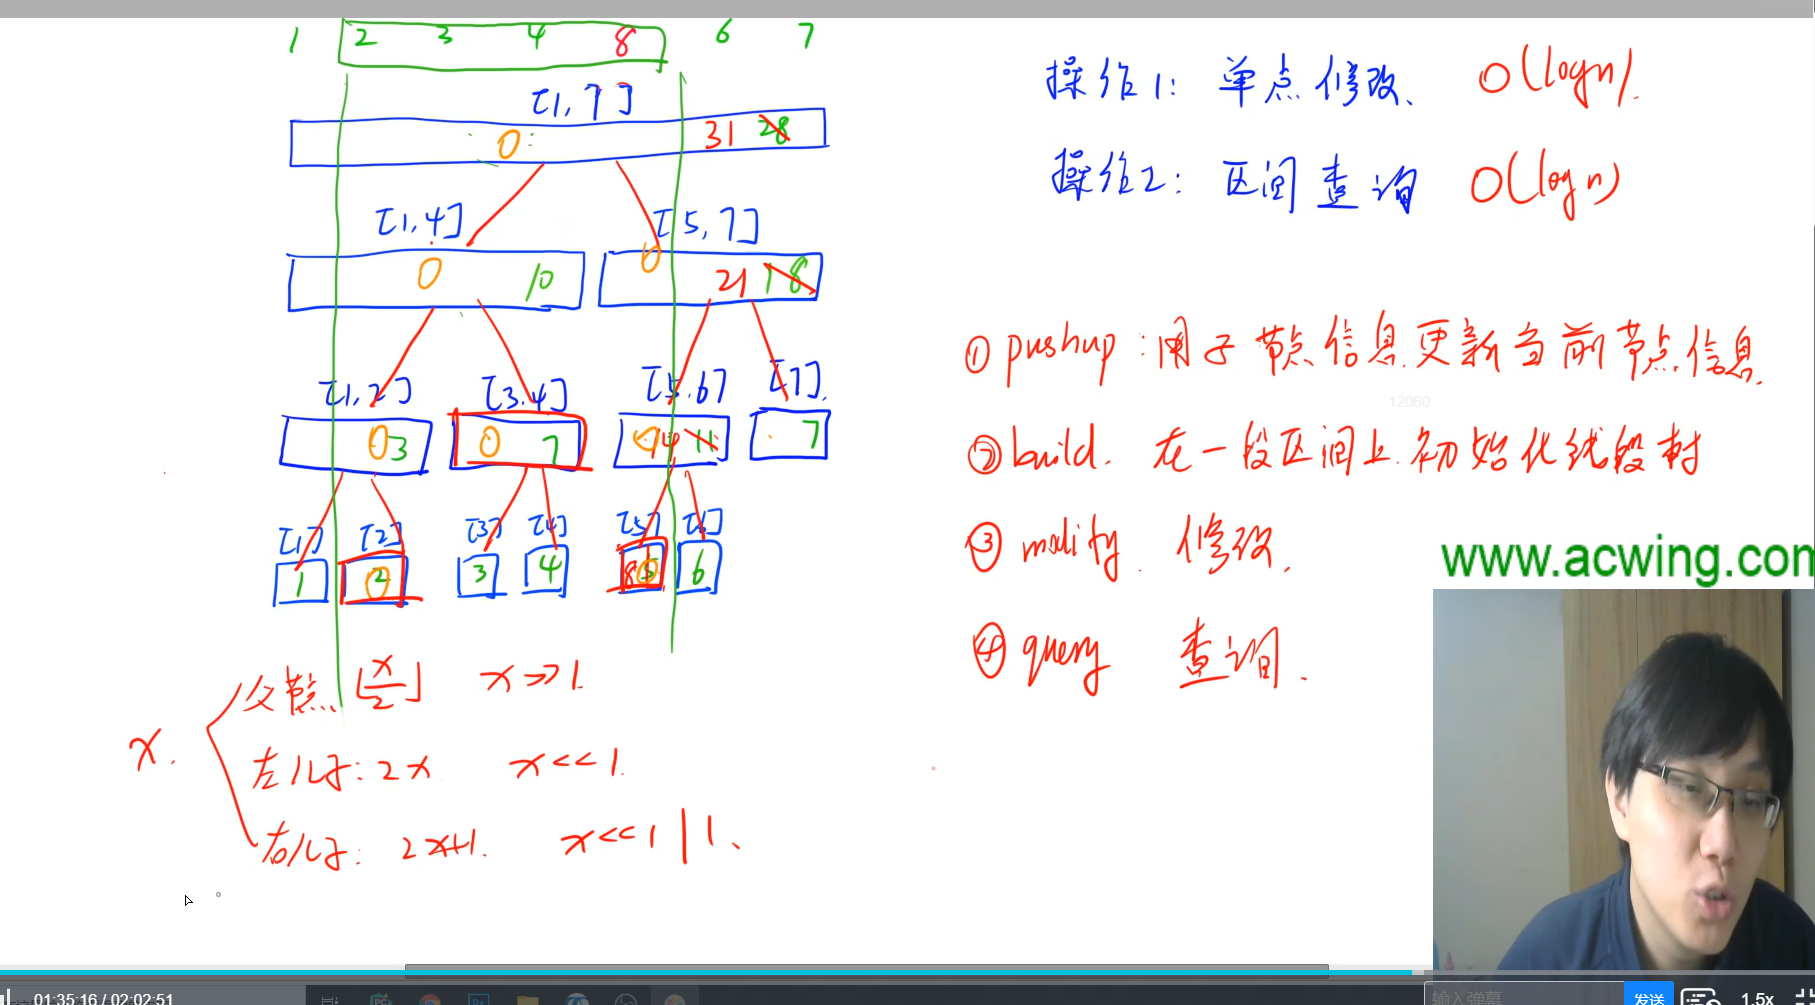 1 2 3 4 8 6 7
[1,7]
0 31 28
[1,4] [5,7]
0 10 0 21 18
[1,2] [3,4] [5,6] [7]
0 3 0 7 14 11 7
[1] [2] [3] [4] [5] [6]
1 2 0 3 4 8 5 0 6
x.
父节点 ⌊x/2⌋ x>>1.
左儿子: 2x x<<1.
右儿子: 2x+1. x<<1|1、
操作1: 单点修改、 O(logn).
操作2: 区间查询 O(logn)
① pushup: 用子节点信息更新当前节点信息.
12060
② build. 在一段区间上初始化线段树
③ modify. 修改.
④ query 查询.
www.acwing.com
01:35:16 / 02:02:51
输入弹幕 发送 1.5x